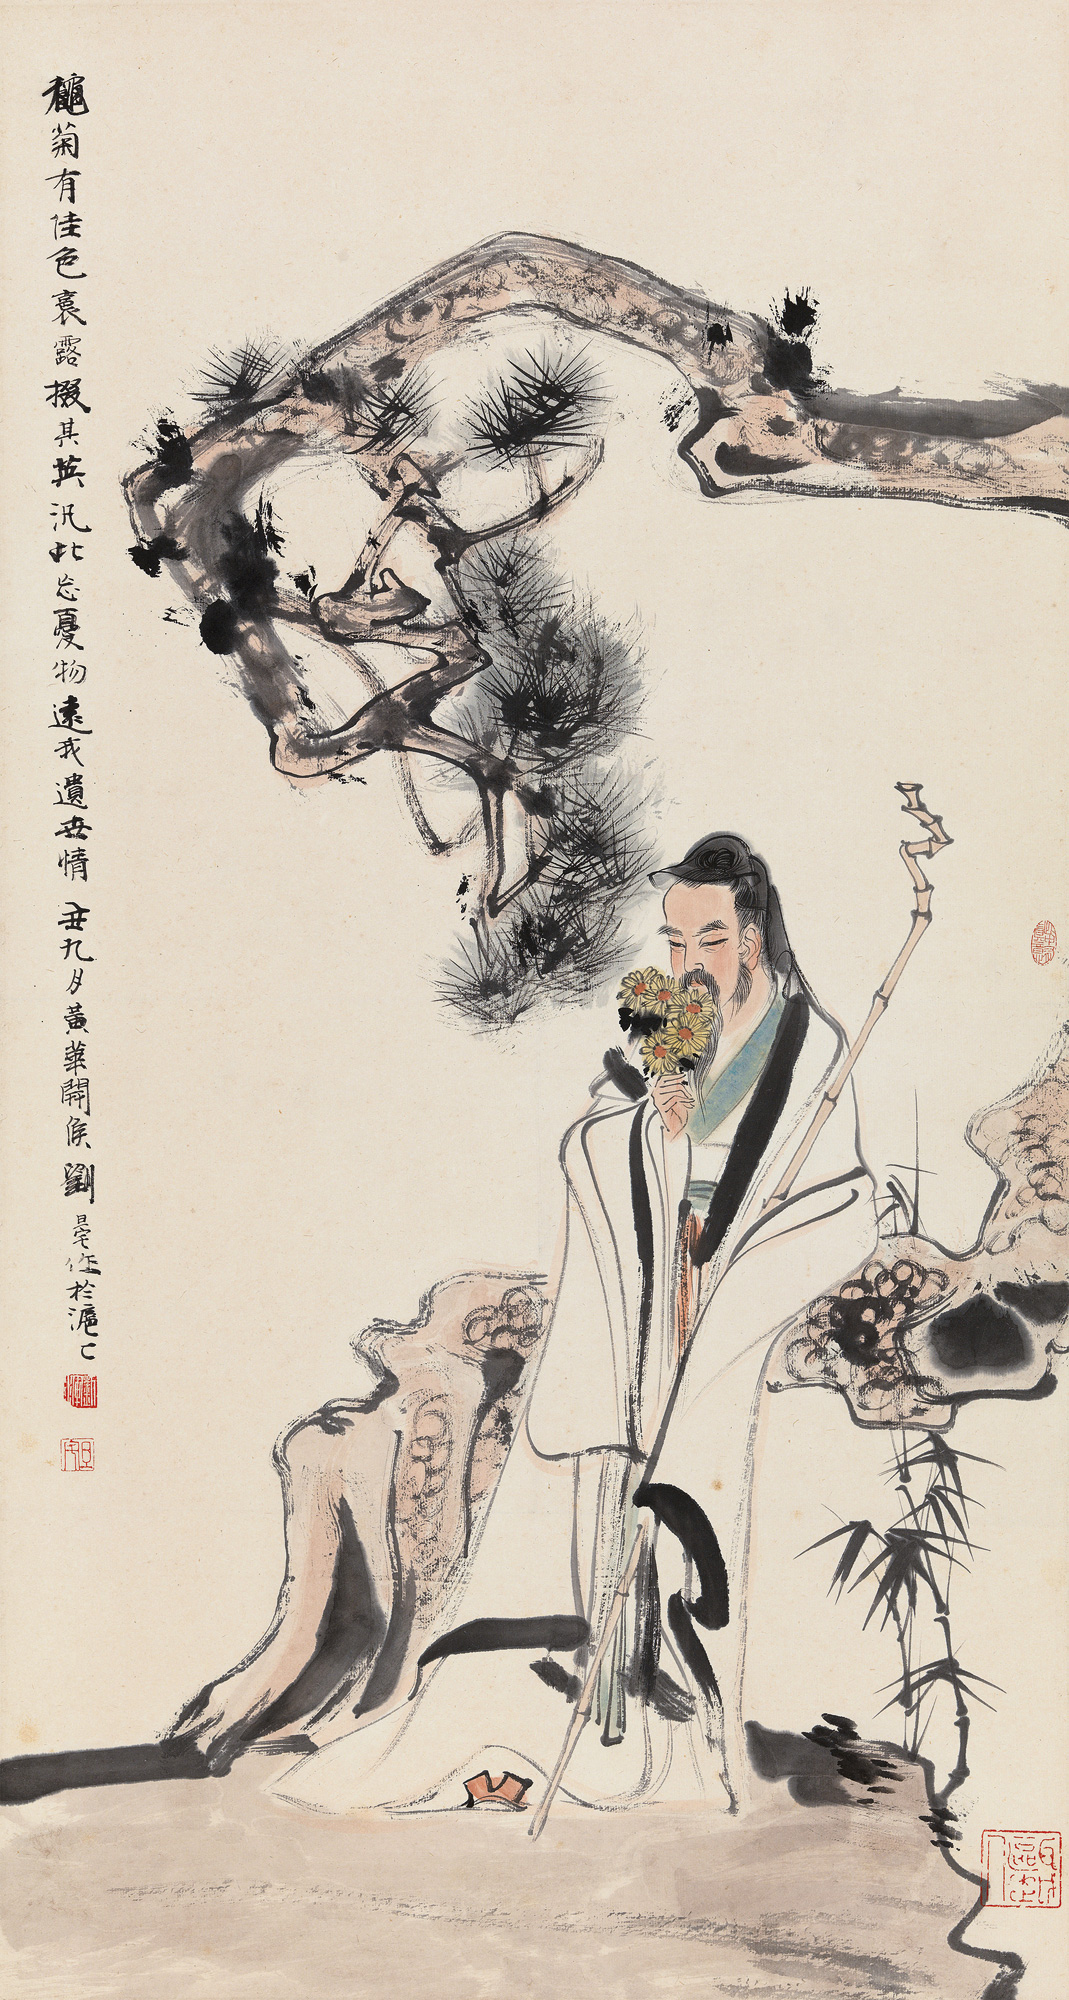 龝菊有佳色裛露掇其英汎此忘憂物遠我遺世情 丑九月黃華開候劉旦宅作於滬上
旦宅